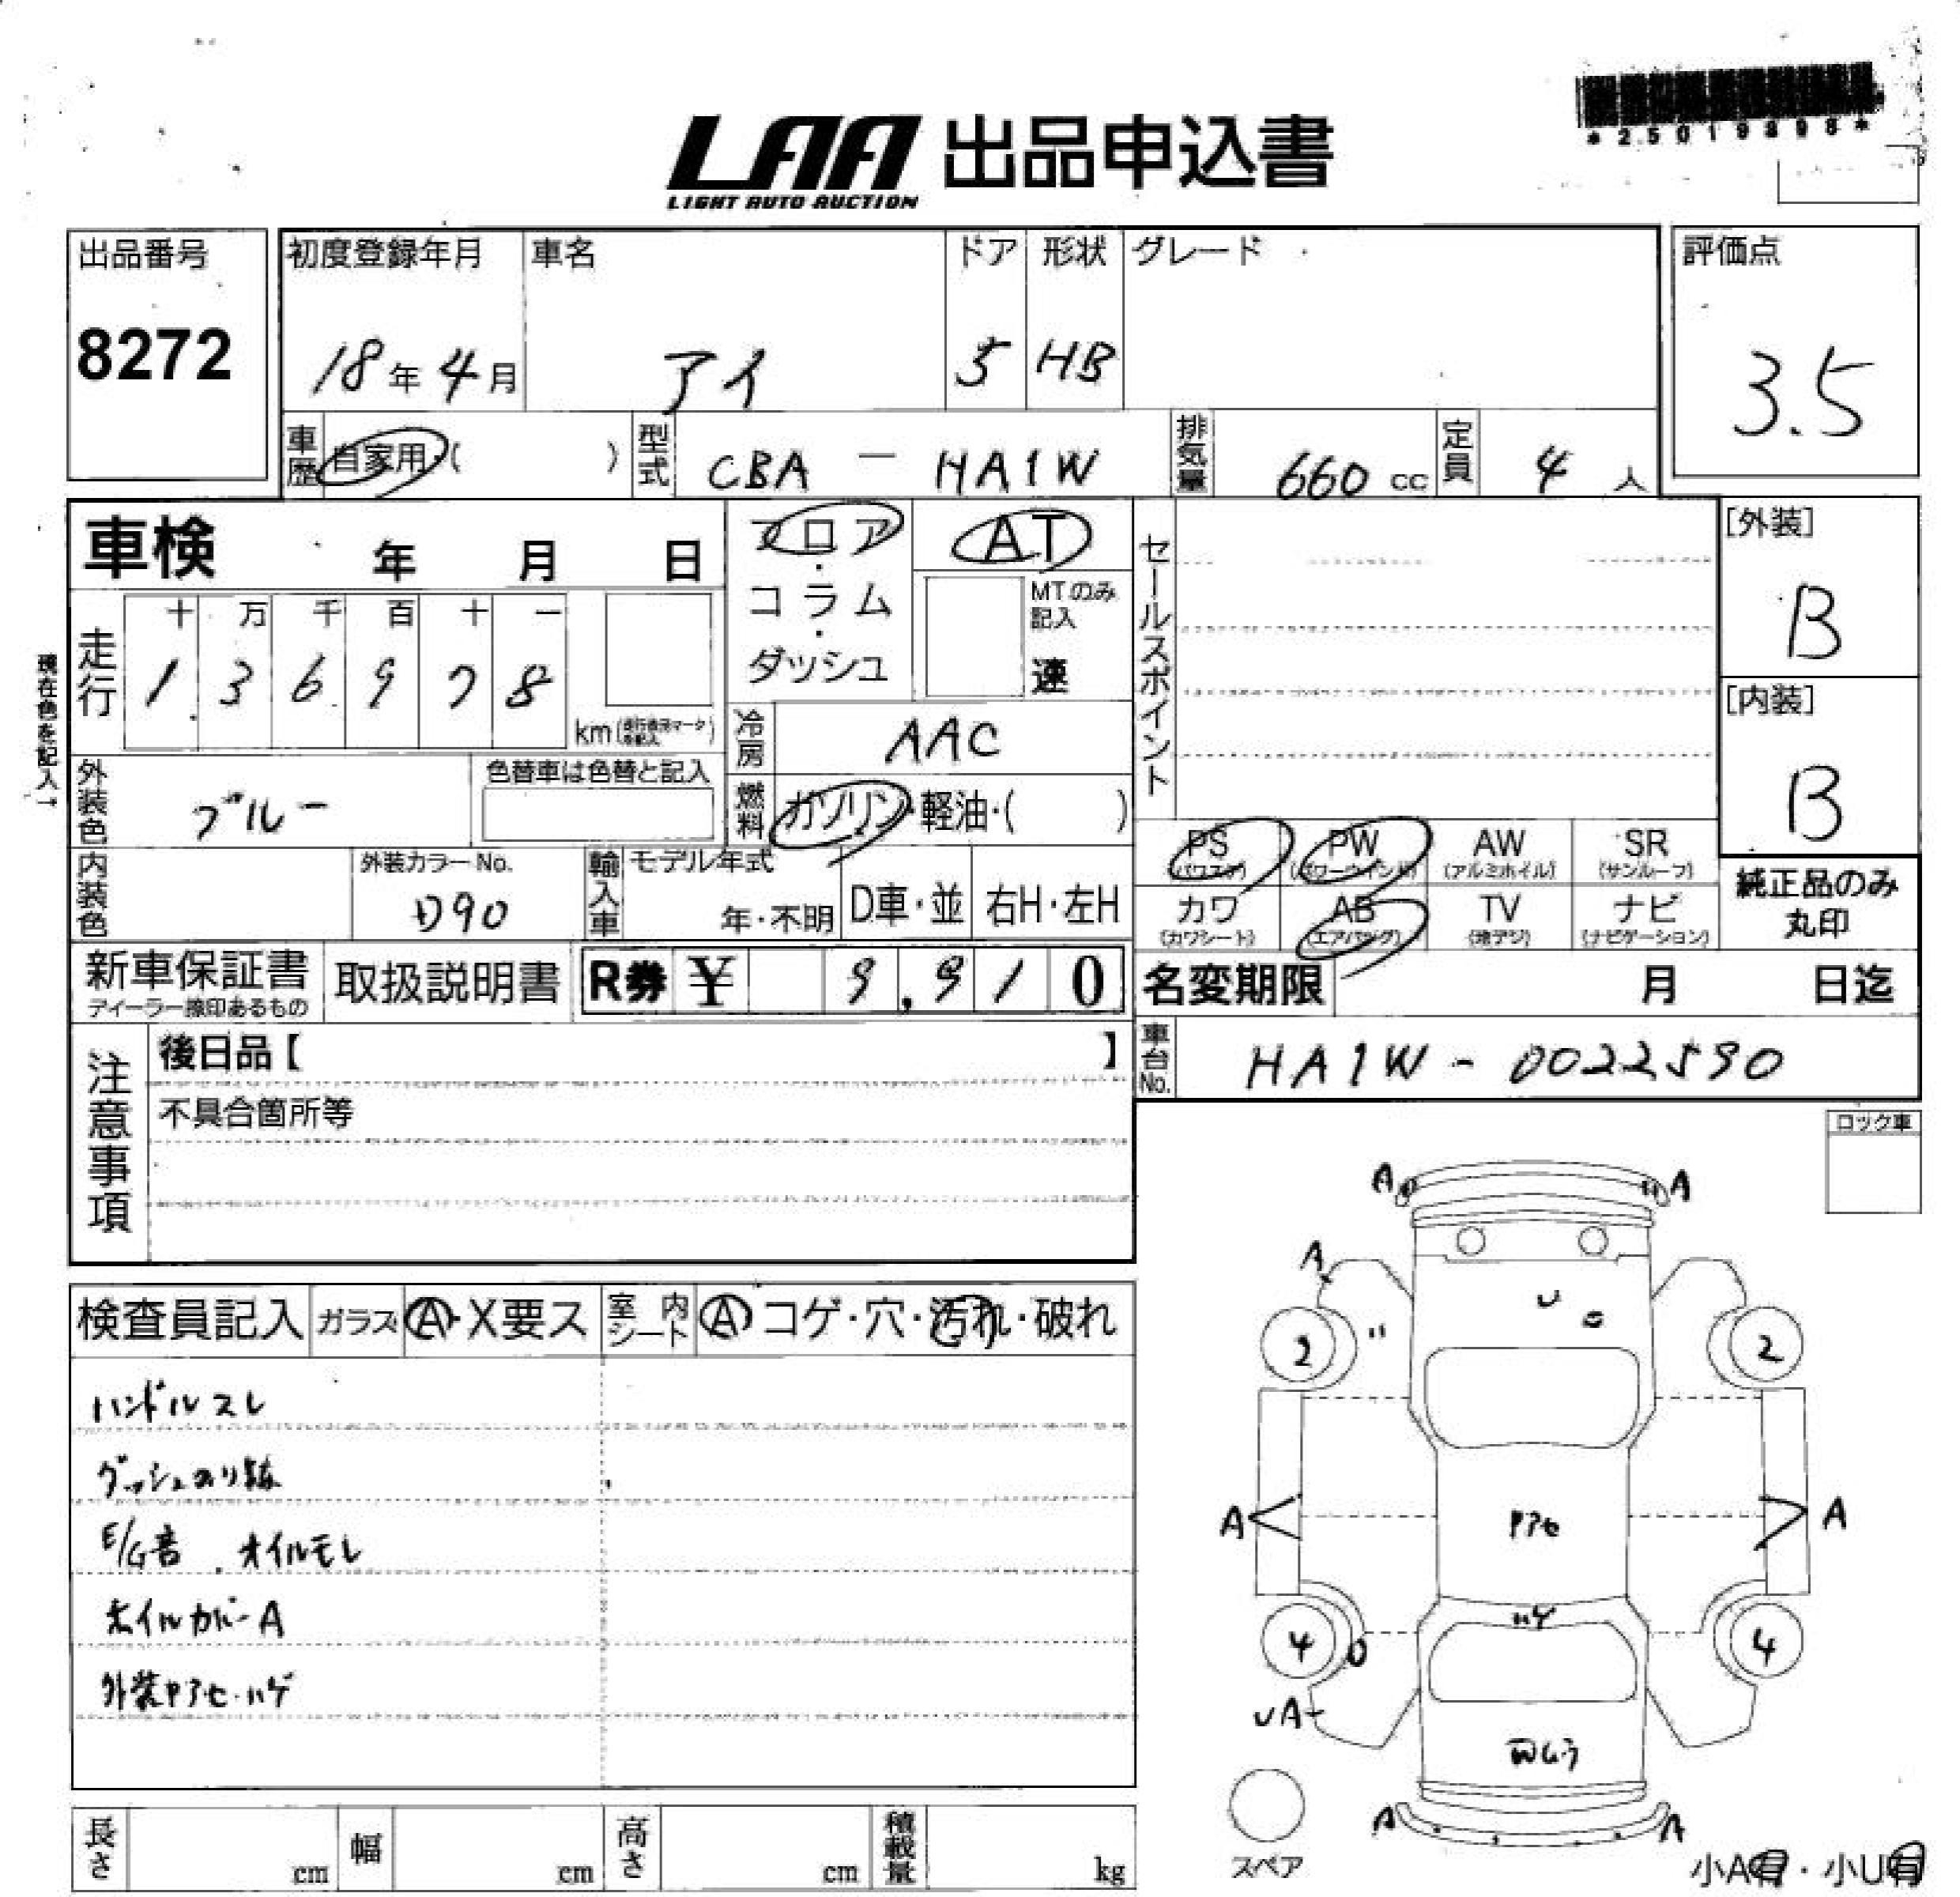 *25019898*
LAA 出品申込書
LIGHT AUTO AUCTION
出品番号 8272
初度登録年月 18年4月
車名 アイ
ドア 5
形状 HB
グレード
評価点 3.5
車歴 自家用・( )
型式 CBA - HA1W
排気量 660 cc
定員 4 人
車検 年 月 日
フロア・コラム・ダッシュ
AT
MTのみ記入 速
セールスポイント
[外装] B
[内装] B
現在色を記入→
走行 十 万 千 百 十 一
1 3 6 9 7 8 km
冷房 AAC
外装色 ブルー
色替車は色替と記入
燃料 ガソリン・軽油・( )
内装色
外装カラーNo. D90
輸入車 モデル年式 年・不明 D車・並 右H・左H
PS (パワステ) PW (パワーウインド) AW (アルミホイル) SR (サンルーフ)
カワ (カワシート) AB (エアバッグ) TV (地デジ) ナビ (ナビゲーション)
純正品のみ丸印
新車保証書 ディーラー捺印あるもの
取扱説明書
R券 ¥ 9,910
名変期限 月 日迄
車台No. HA1W - 0022590
注意事項
後日品【 】
不具合箇所等
ロック車
検査員記入 ガラス A・X要ス 室内シート A コゲ・穴・汚れ・破れ
ハンドルスレ
ダッシュのり跡
E/G音. オイルモレ
ホイルカバーA
外装ヤケアセ・ハゲ
A A
A
2 〃 2
A A
ハゲ
4 4
UA
A A
スペア
小A有・小U有
長さ cm 幅 cm 高さ cm 積載量 kg